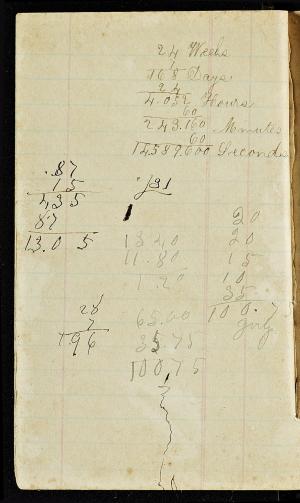 24 Weeks
7
168 Days
24
4.032 Hours
60
243.160 Minutes
60
14589600 Seconds
.87
15
435
87
13.0 5
20
20
15
10
35
100.
1340
11.80
1.20
28
7
196
65.00
35.75
100 75